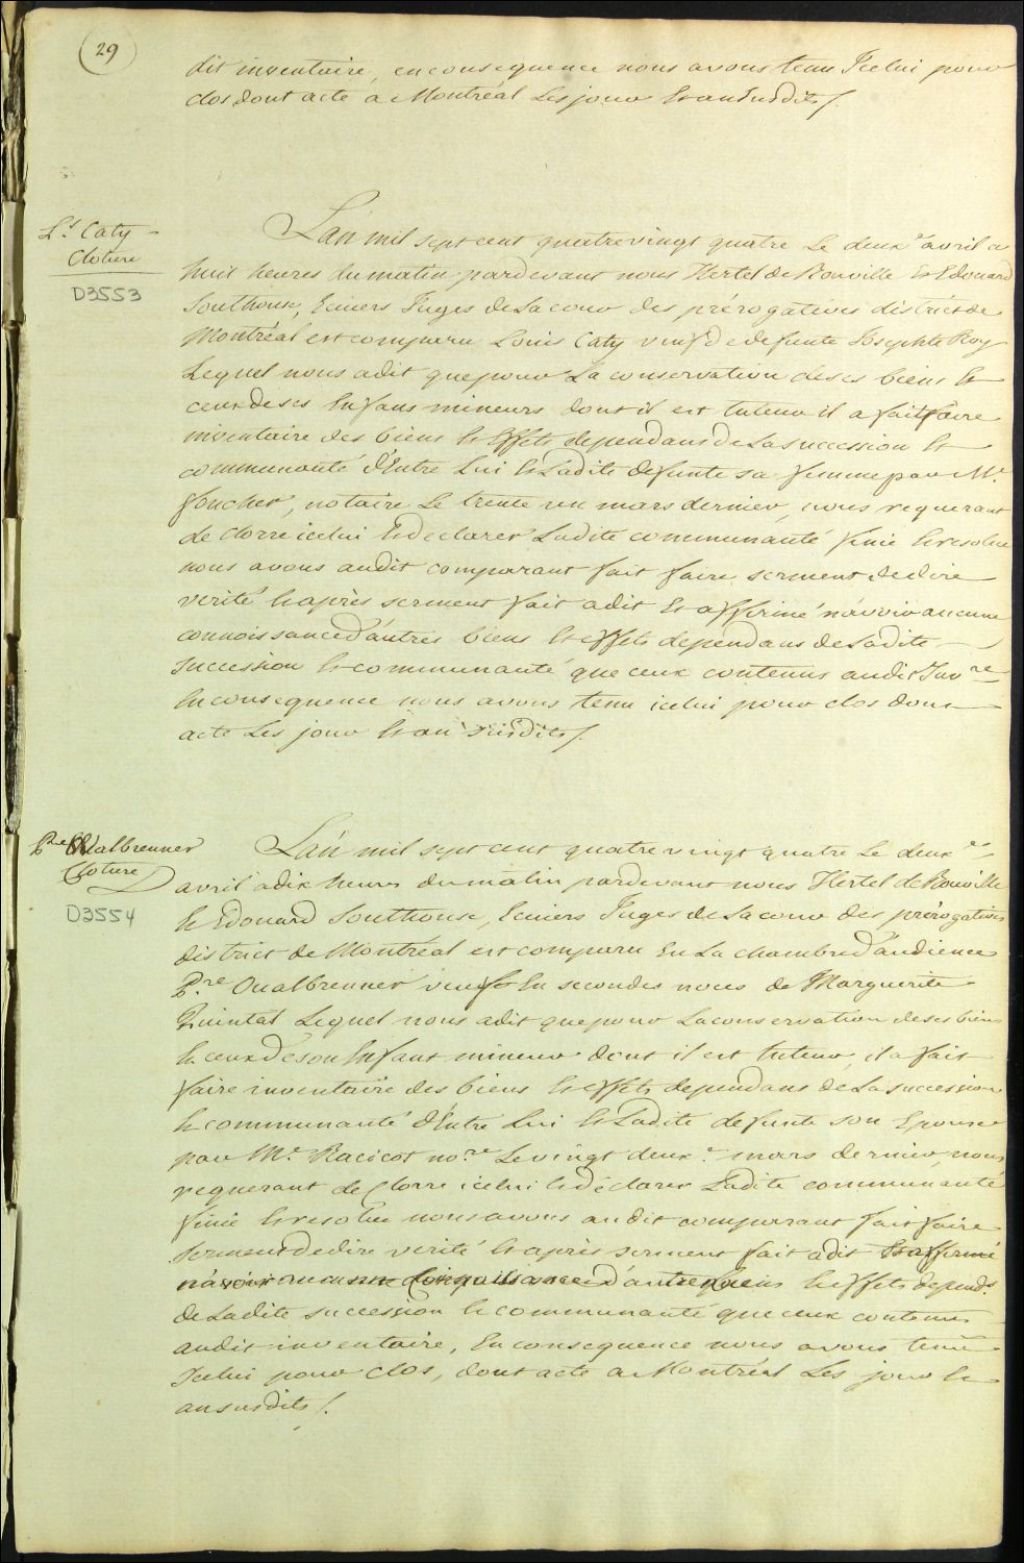 29
dit inventaire, en consequence nous avons tenu Icelui pour
clos dont acte a Montréal Les jour Et an Susdits /.
Ls. Caty
Cloture
D3553
L'an mil sept cent quatrevingt quatre Le deuxe avril a
huit heures du matin pardevant nous Hertel de Rouville Et Edouard
Southouse, Ecuiers Juges de La cour des prérogatives district de
Montréal est comparu Louis Caty veuf de defunte Josephte Roy
Lequel nous a dit que pour La conservation de ses biens Et
ceux de ses Enfans mineurs dont il est tuteur il a fait faire
inventaire des biens Et Effets dependans de La succession Et
communauté d'Entre Lui Et Ladite defunte sa femme par Mr.
foucher, notaire Le trente un mars dernier, nous requerant
de clorre icelui Et declarer Ladite communauté finie Et resolue
nous avons audit comparant fait faire serment de dire
verité Et après serment fait a dit Et affirmé n'avoir aucune
connoissance d'autres biens Et effets dependans de Ladite
succession Et communauté que ceux contenus audit Invre
En consequence nous avons tenu icelui pour clos dont
acte Les jour Et an susdits /.
Pre Oualbrenner
Cloture
D3554
L'an mil sept cent quatre vingt quatre Le deuxe
avril a dix heures du matin pardevant nous Hertel de Rouville
Et Edouard Southouse, Ecuiers Juges de La cour des prérogatives
district de Montréal est comparu En La chambre d'audience
Pre Oualbrenner veuf En secondes noces de Marguerite
Quintal Lequel nous a dit que pour La conservation de ses biens
Et ceux de son Enfant mineur dont il est tuteur, il a fait
faire inventaire des biens Et effets dependans de La succession
Et communauté d'Entre Lui Et Ladite defunte son Epouse
par Mr. Racicot nore. Le vingt deuxe. mars dernier, nous
requerant de Clorre icelui Et déclarer Ladite communauté
finie Et resolue nous avons audit comparant fait faire
serment de dire verité Et après serment fait a dit Et affirmé
n'avoir aucune Connoissance d'autres biens Et effets depends.
de Ladite succession Et communauté que ceux contenus
audit inventaire, En consequence nous avons tenu
Icelui pour clos, dont acte a Montréal Les jour Et
an susdits /.